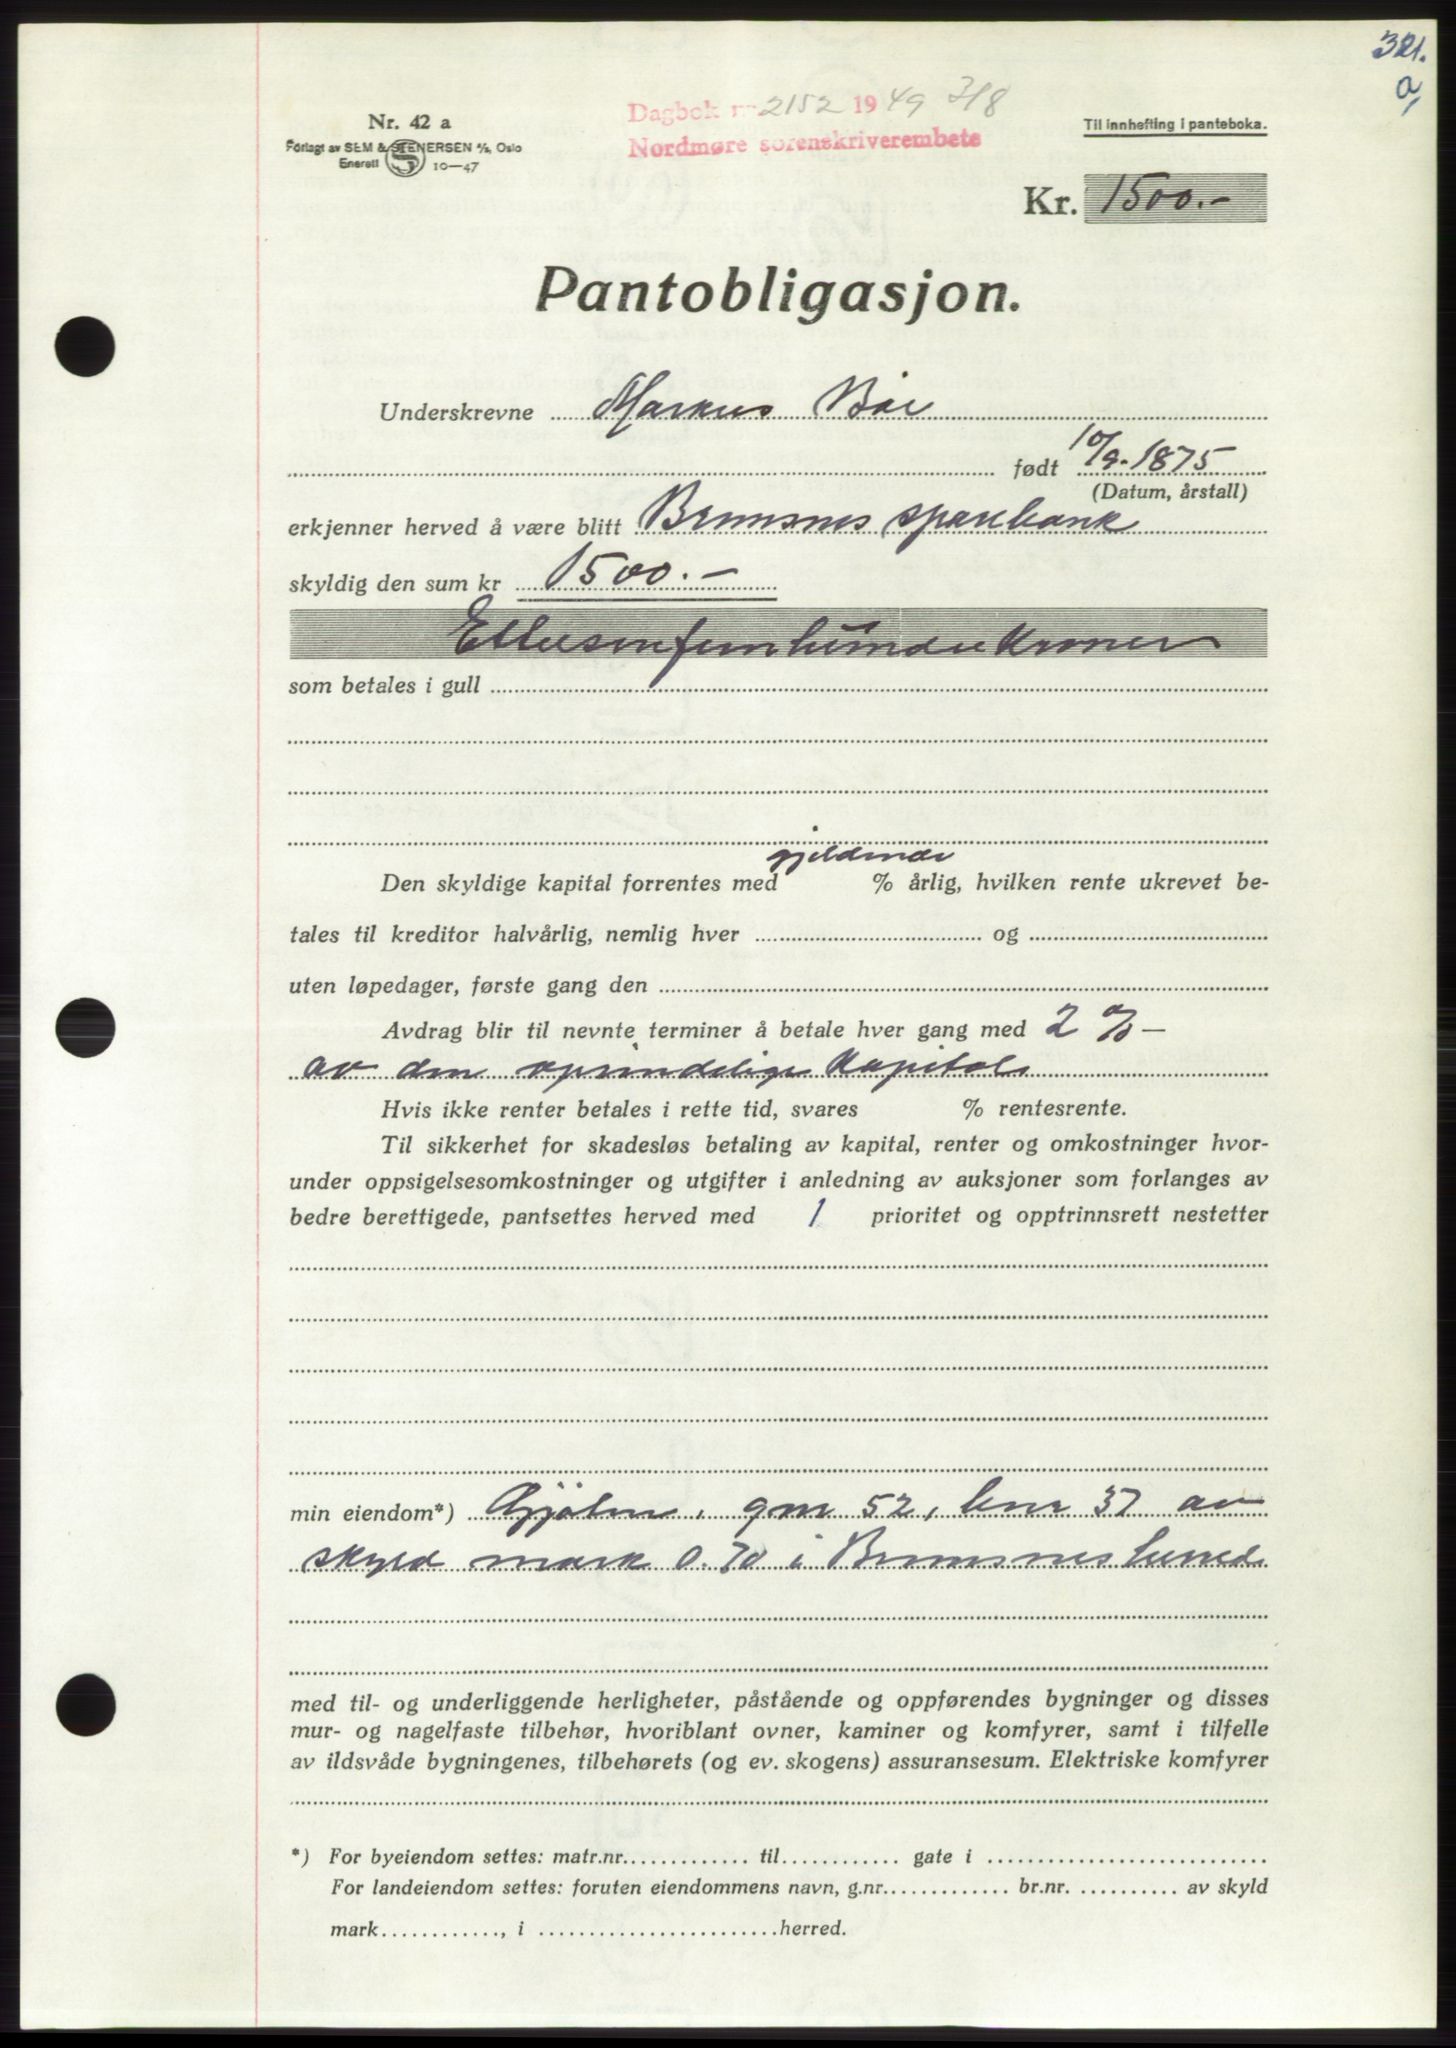 321.
a,
Nr. 42 a
Forlagt av SEM & STENERSEN A/S, Oslo
Enerett S 10—47
Dagbok nr 2152 1949 3/8
Nordmøre sorenskriverembete
Til innhefting i panteboka.
Kr. 1500.-
Pantobligasjon.
Underskrevne Markus Bøe
født 10/9-1875
(Datum, årstall)
erkjenner herved å være blitt Bremsnes sparebank
skyldig den sum kr 1500.-
Ettusenfemhundre kroner
som betales i gull
gjeldende
Den skyldige kapital forrentes med % årlig, hvilken rente ukrevet be-
tales til kreditor halvårlig, nemlig hver og
uten løpedager, første gang den
Avdrag blir til nevnte terminer å betale hver gang med 2 % —
av den oprindelige kapital
Hvis ikke renter betales i rette tid, svares % rentesrente.
Til sikkerhet for skadesløs betaling av kapital, renter og omkostninger hvor-
under oppsigelsesomkostninger og utgifter i anledning av auksjoner som forlanges av
bedre berettigede, pantsettes herved med 1 prioritet og opptrinnsrett nestetter
min eiendom*) gnr 52, bnr 37 av
skyld mark 0.70 i Bremsnes herred
med til- og underliggende herligheter, påstående og oppførendes bygninger og disses
mur- og nagelfaste tilbehør, hvoriblant ovner, kaminer og komfyrer, samt i tilfelle
av ildsvåde bygningenes, tilbehørets (og ev. skogens) assuransesum. Elektriske komfyrer
*) For byeiendom settes: matr.nr. til gate i
For landeiendom settes: foruten eiendommens navn, g.nr. br.nr. av skyld
mark , i herred.